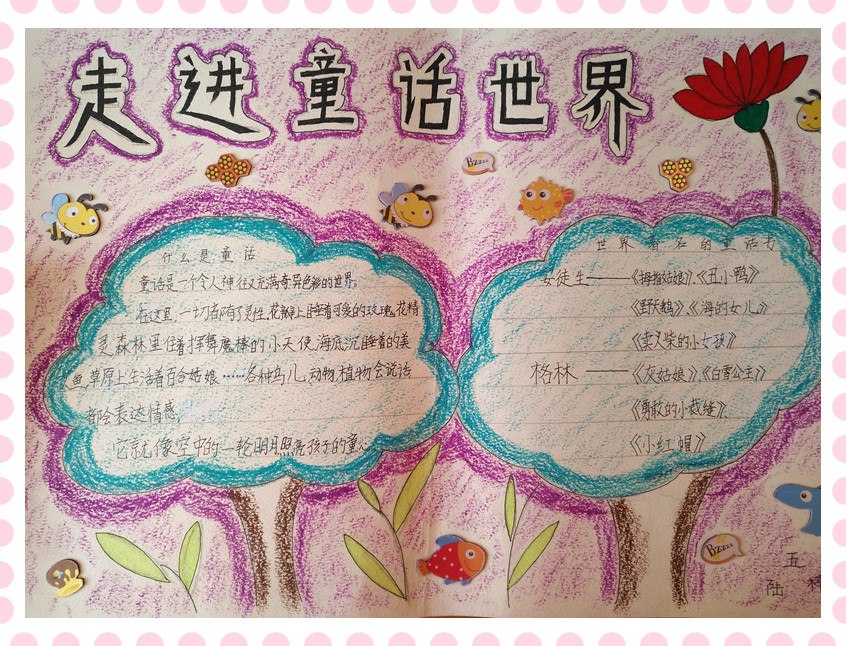 走进童话世界
Bzzzz
什么是童话
童话是一个令人神往又充满奇异色彩的世界。
在这里,一切都有了灵性,花瓣上睡着可爱的玫瑰花精
灵,森林里住着挥舞魔棒的小天使,海底沉睡着的美
鱼,草原上生活着百合姑娘……各种鸟儿,动物,植物会说话
都会表达情感。
它就像空中的一轮明月照亮孩子的童心
世界著名的童话
安徒生——《拇指姑娘》、《丑小鸭》
《野天鹅》《海的女儿》
《卖火柴的小女孩》
格林——《灰姑娘》、《白雪公主》
《勇敢的小裁缝》
《小红帽》
Bzzzz
五
陆